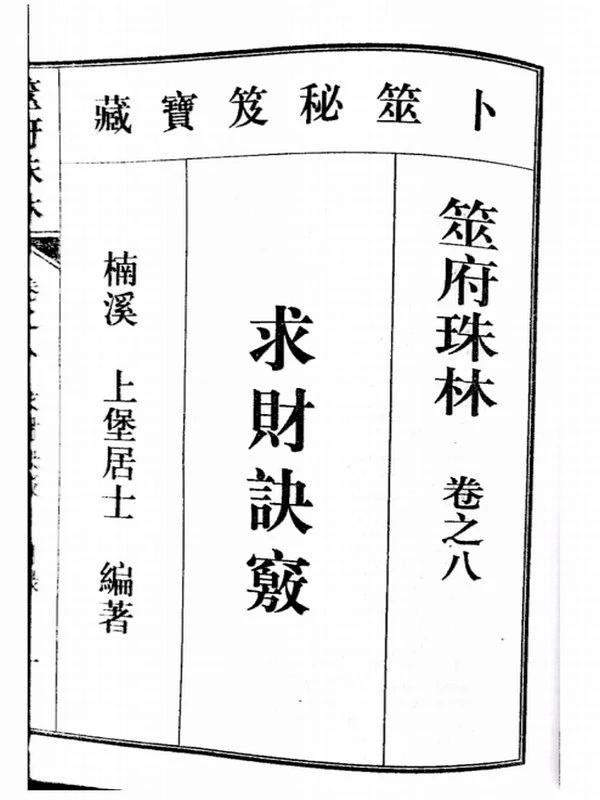 卜筮秘笈寶藏
筮府珠林 卷之八
求財訣竅
楠溪 上堡居士 編著
筮府珠林